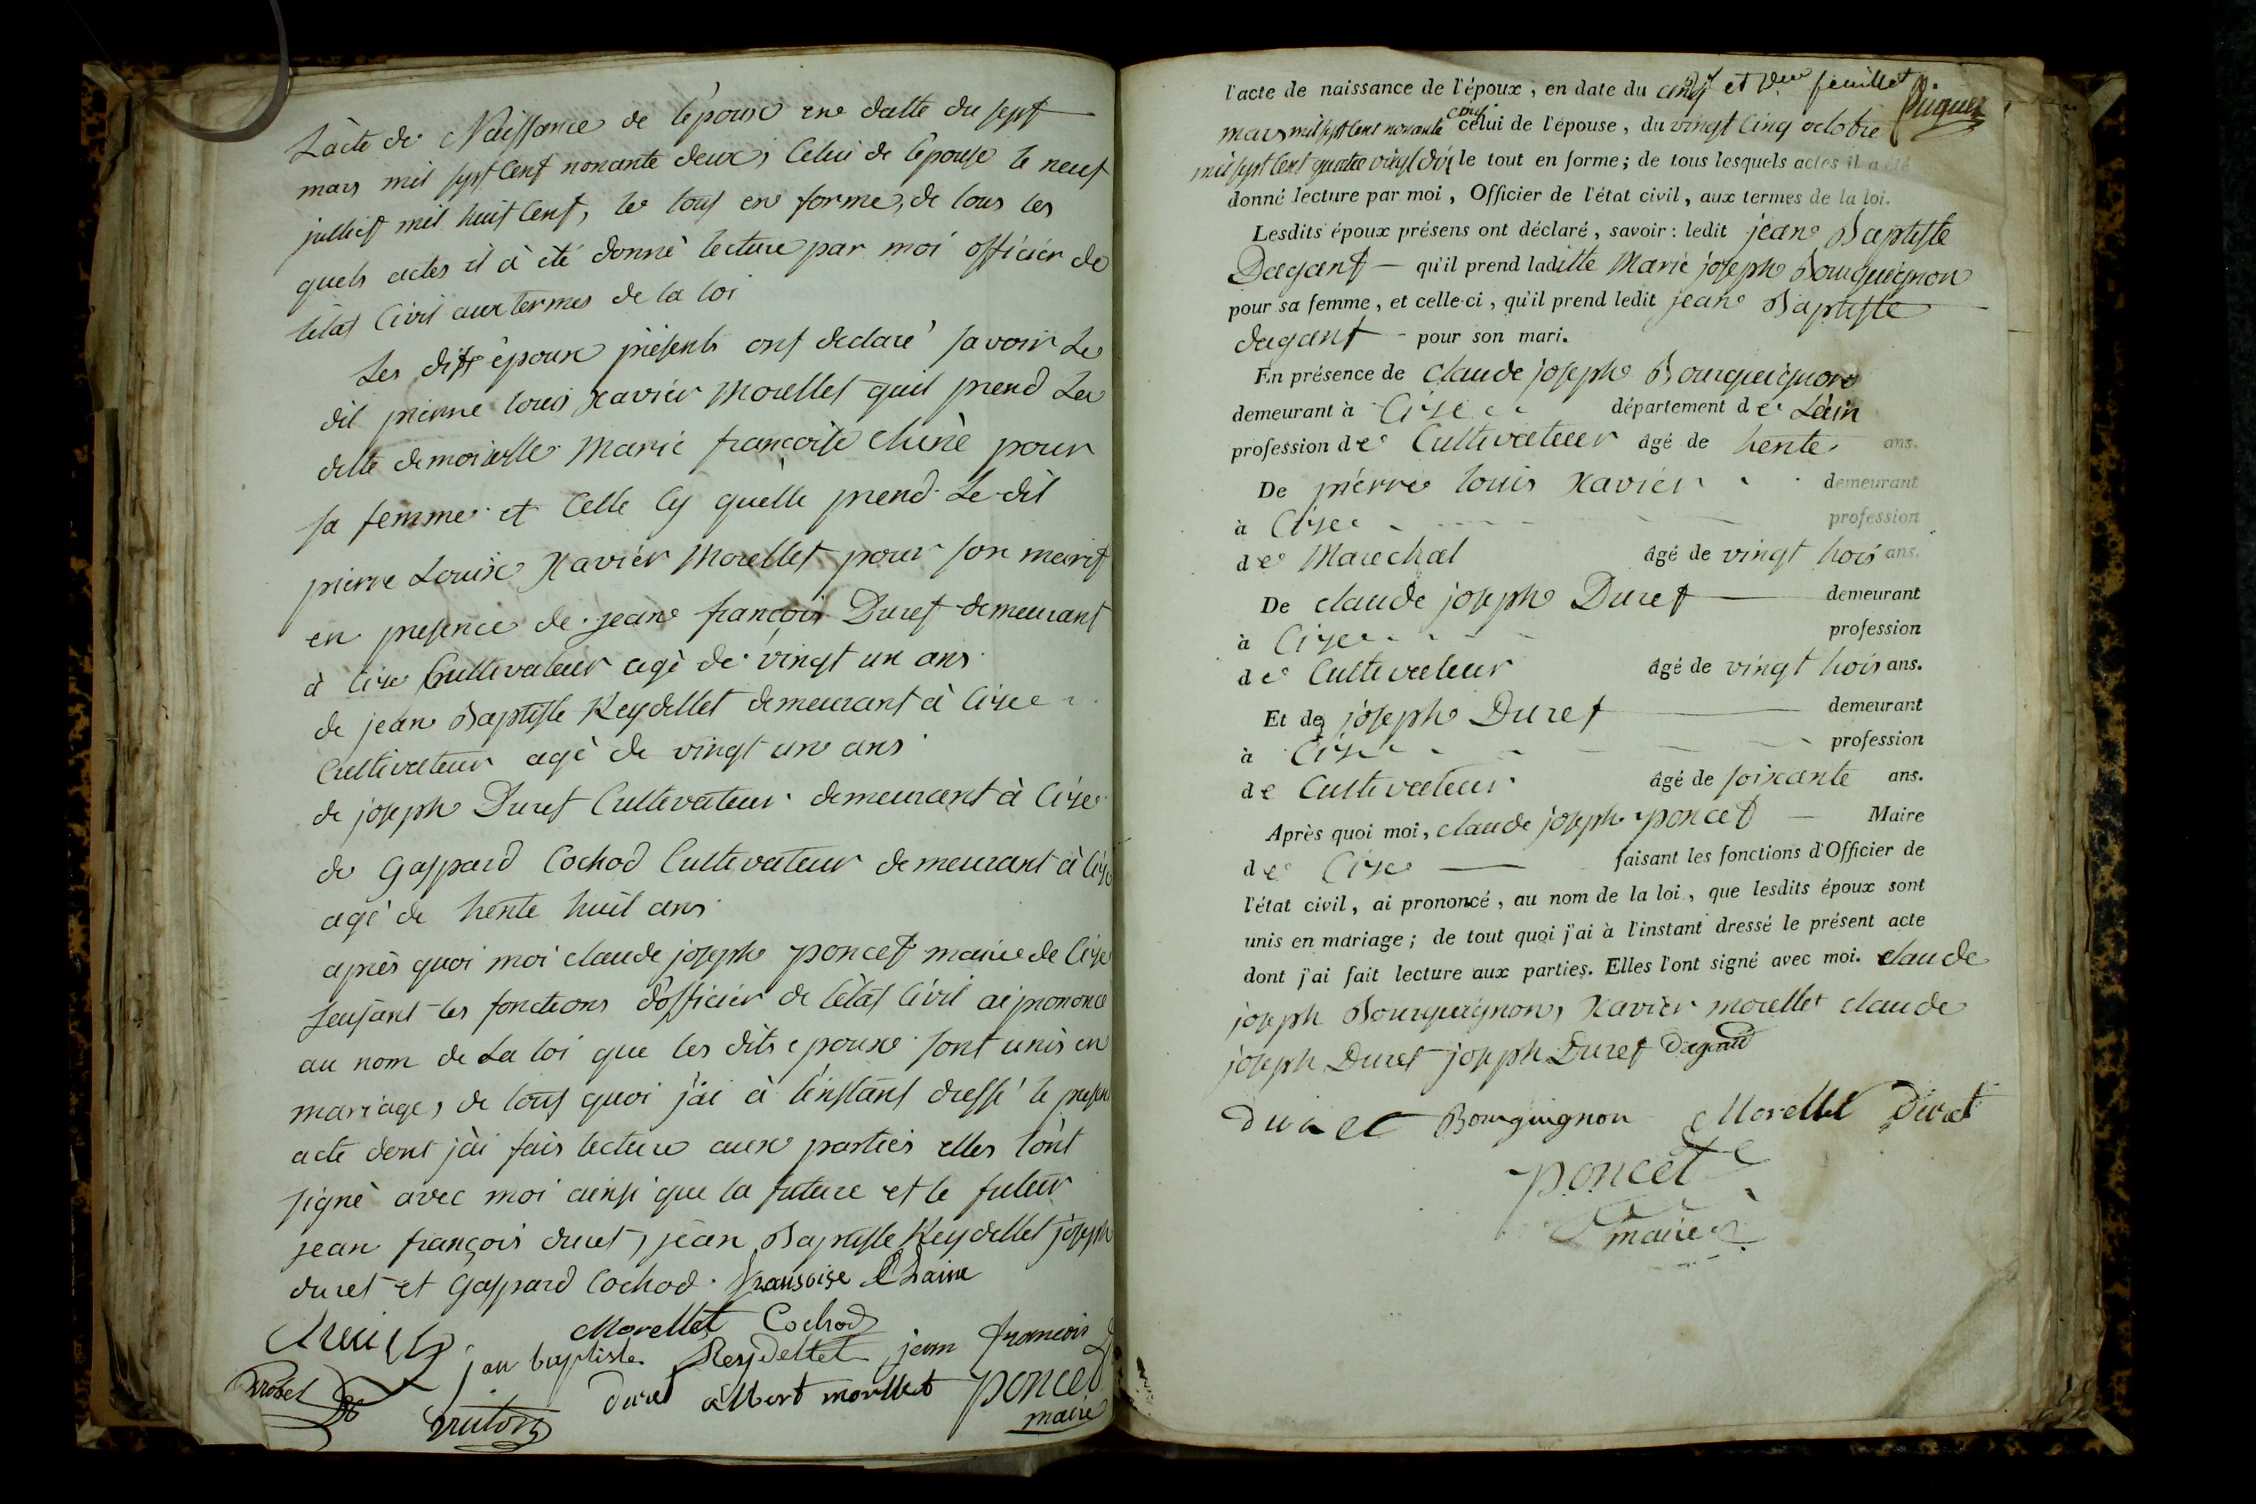 L'acte de Naissance de l'époux en datte du sept
mars mil sept cent nonante deux, celui de l'épouse le neuf
juillet mil huit cent, le tout en forme, de tous les
quels actes il à été donné lecture par moi officier de
l'état civil aux termes de la loi
Les dits époux présents ont declaré savoir Le
dit pierre louis Xavier Morellet quil prend La
ditte demoiselle Marie françoise Chêne pour
sa femme et celle cy quelle prend Le dit
pierre Louis Xavier Morellet pour son marit
en presence de jean françois Duret demeurant
à Cize Cultivateur agé de vingt un ans
de jean Baptiste Reydellet demeurant à Cize
Cultivateur agé de vingt un ans
de joseph Duret Cultivateur demeurant à Cize
de Gaspard Cochod Cultivateur demeurant à Cize
agé de trente huit ans
après quoi moi claude joseph poncet maire de Cize
faisant les fonctions d'officier de l'état civil ai prononcé
au nom de La loi que les dits epoux sont unis en
mariage, de tout quoi j'ai à l'instant dressé le present
acte dont j'ai fais lecture aux parties elles l'ont
signé avec moi ainsi que la future et le futur
jean françois duret, jean Baptiste Reydellet joseph
duret et Gaspard Cochod. fransoise Chaine
Morellet Cochod
jan baptiste Reydellet jean francois D
duret albert morellet poncet
maire
l'acte de naissance de l'époux, en date du cinq et
mars mil sept cent nonante cinq celui de l'épouse, du vingt cinq octobre
mil sept cent quatre vingt dix le tout en forme; de tous lesquels actes il a été
donné lecture par moi, Officier de l'état civil, aux termes de la loi.
Lesdits époux présens ont déclaré, savoir: ledit jean Baptiste
Dagant — qu'il prend laditte Marie joseph Bourguignon
pour sa femme, et celle-ci, qu'il prend ledit jean Baptiste
dagant - pour son mari.
En présence de claude joseph Bourguignon
demeurant à Cize département de Lain
profession de Cultivateur âgé de trente ans.
De pierre louis Xavier demeurant
à Cize profession
de Marechal âgé de vingt trois ans.
De claude joseph Duret demeurant
à Cize profession
de Cultivateur âgé de vingt trois ans.
Et de joseph Duret demeurant
à Cize profession
de Cultivateur âgé de soixante ans.
Après quoi moi, claude joseph poncet — Maire
de Cize — faisant les fonctions d'Officier de
l'état civil, ai prononcé, au nom de la loi, que lesdits époux sont
unis en mariage; de tout quoi j'ai à l'instant dressé le présent acte
dont j'ai fait lecture aux parties. Elles l'ont signé avec moi. claude
joseph Bourguignon, Xavier morellet claude
joseph Duret joseph Duret Dagand
Duret Bourguignon Morellet Duret
poncet
maire